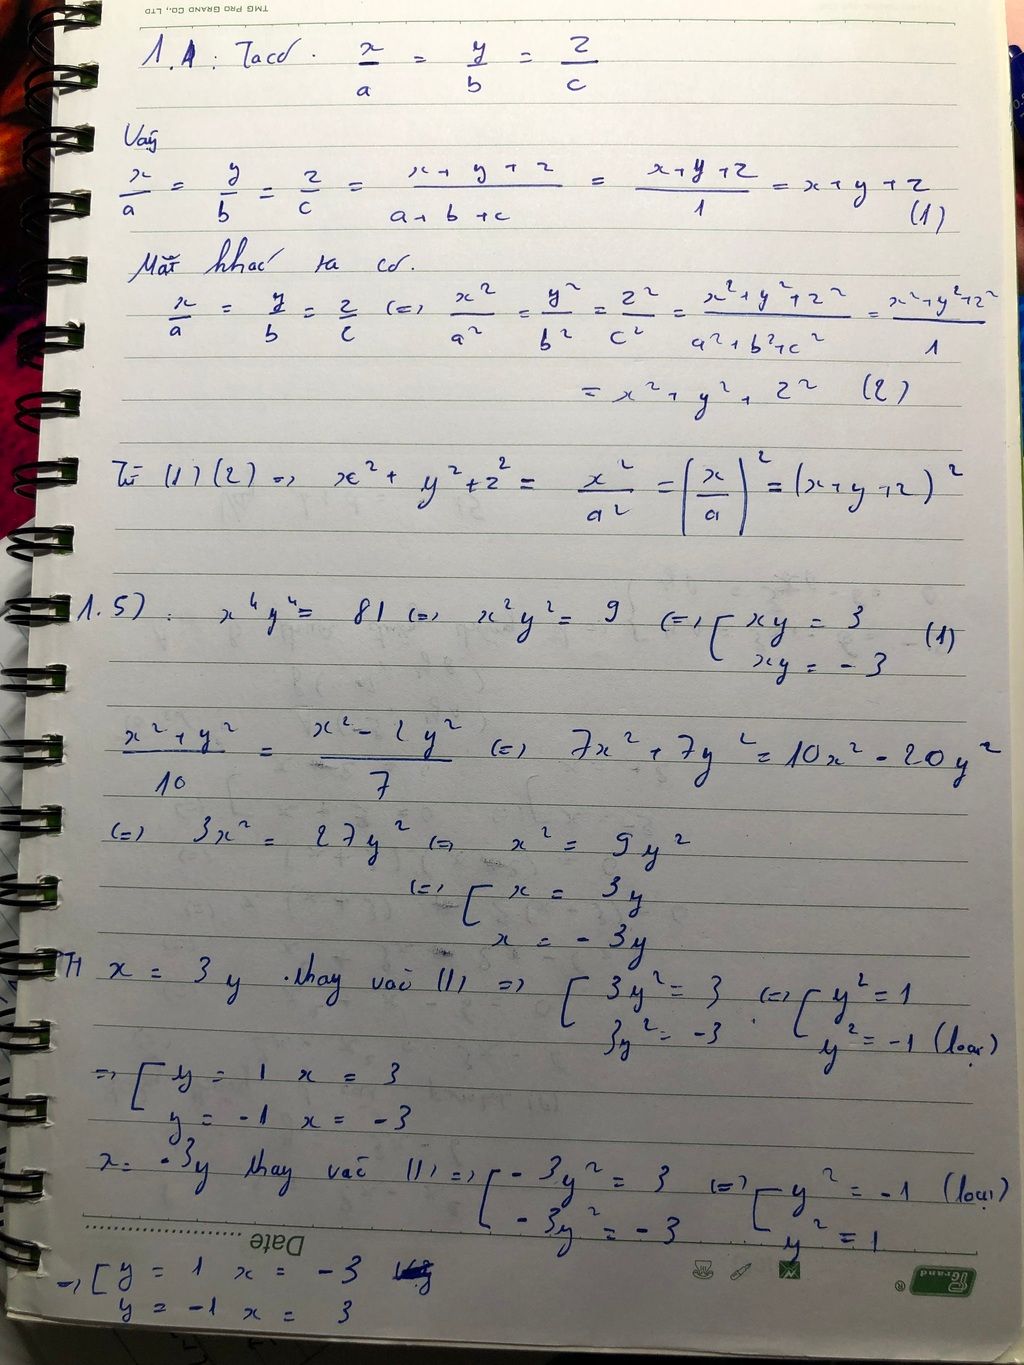 TMG PRO GRAND CO., LTD
1.1: Ta có. x/a = y/b = z/c
Vaỹ
x/a = y/b = z/c = (x + y + z)/(a + b + c) = (x+y+z)/1 = x+y+z (1)
Mặt khác ta có.
x/a = y/b = z/c (=) x²/a² = y²/b² = z²/c² = (x²+y²+z²)/(a²+b²+c²) = (x²+y²+z²)/1
= x² + y² + z² (2)
Từ (1) (2) => x² + y² + z² = x²/a² = (x/a)² = (x+y+z)²
1.5). x⁴y⁴ = 81 (=) x²y² = 9 (=) [ xy = 3 (1)
xy = -3
(x² + y²)/10 = (x² - 2y²)/7 (=) 7x² + 7y² = 10x² - 20y²
(=) 3x² = 27y² (=) x² = 9y²
(=) [ x = 3y
x = -3y
TH x = 3y thay vào (1) => [ 3y² = 3 (=) [ y² = 1
3y² = -3 y² = -1 (loại)
=> [ y = 1 x = 3
y = -1 x = -3
x = -3y thay vào (1) => [ -3y² = 3 (=) [ y² = -1 (loại)
-3y² = -3 y² = 1
Date
=> [ y = 1 x = -3
y = -1 x = 3
Grand ®